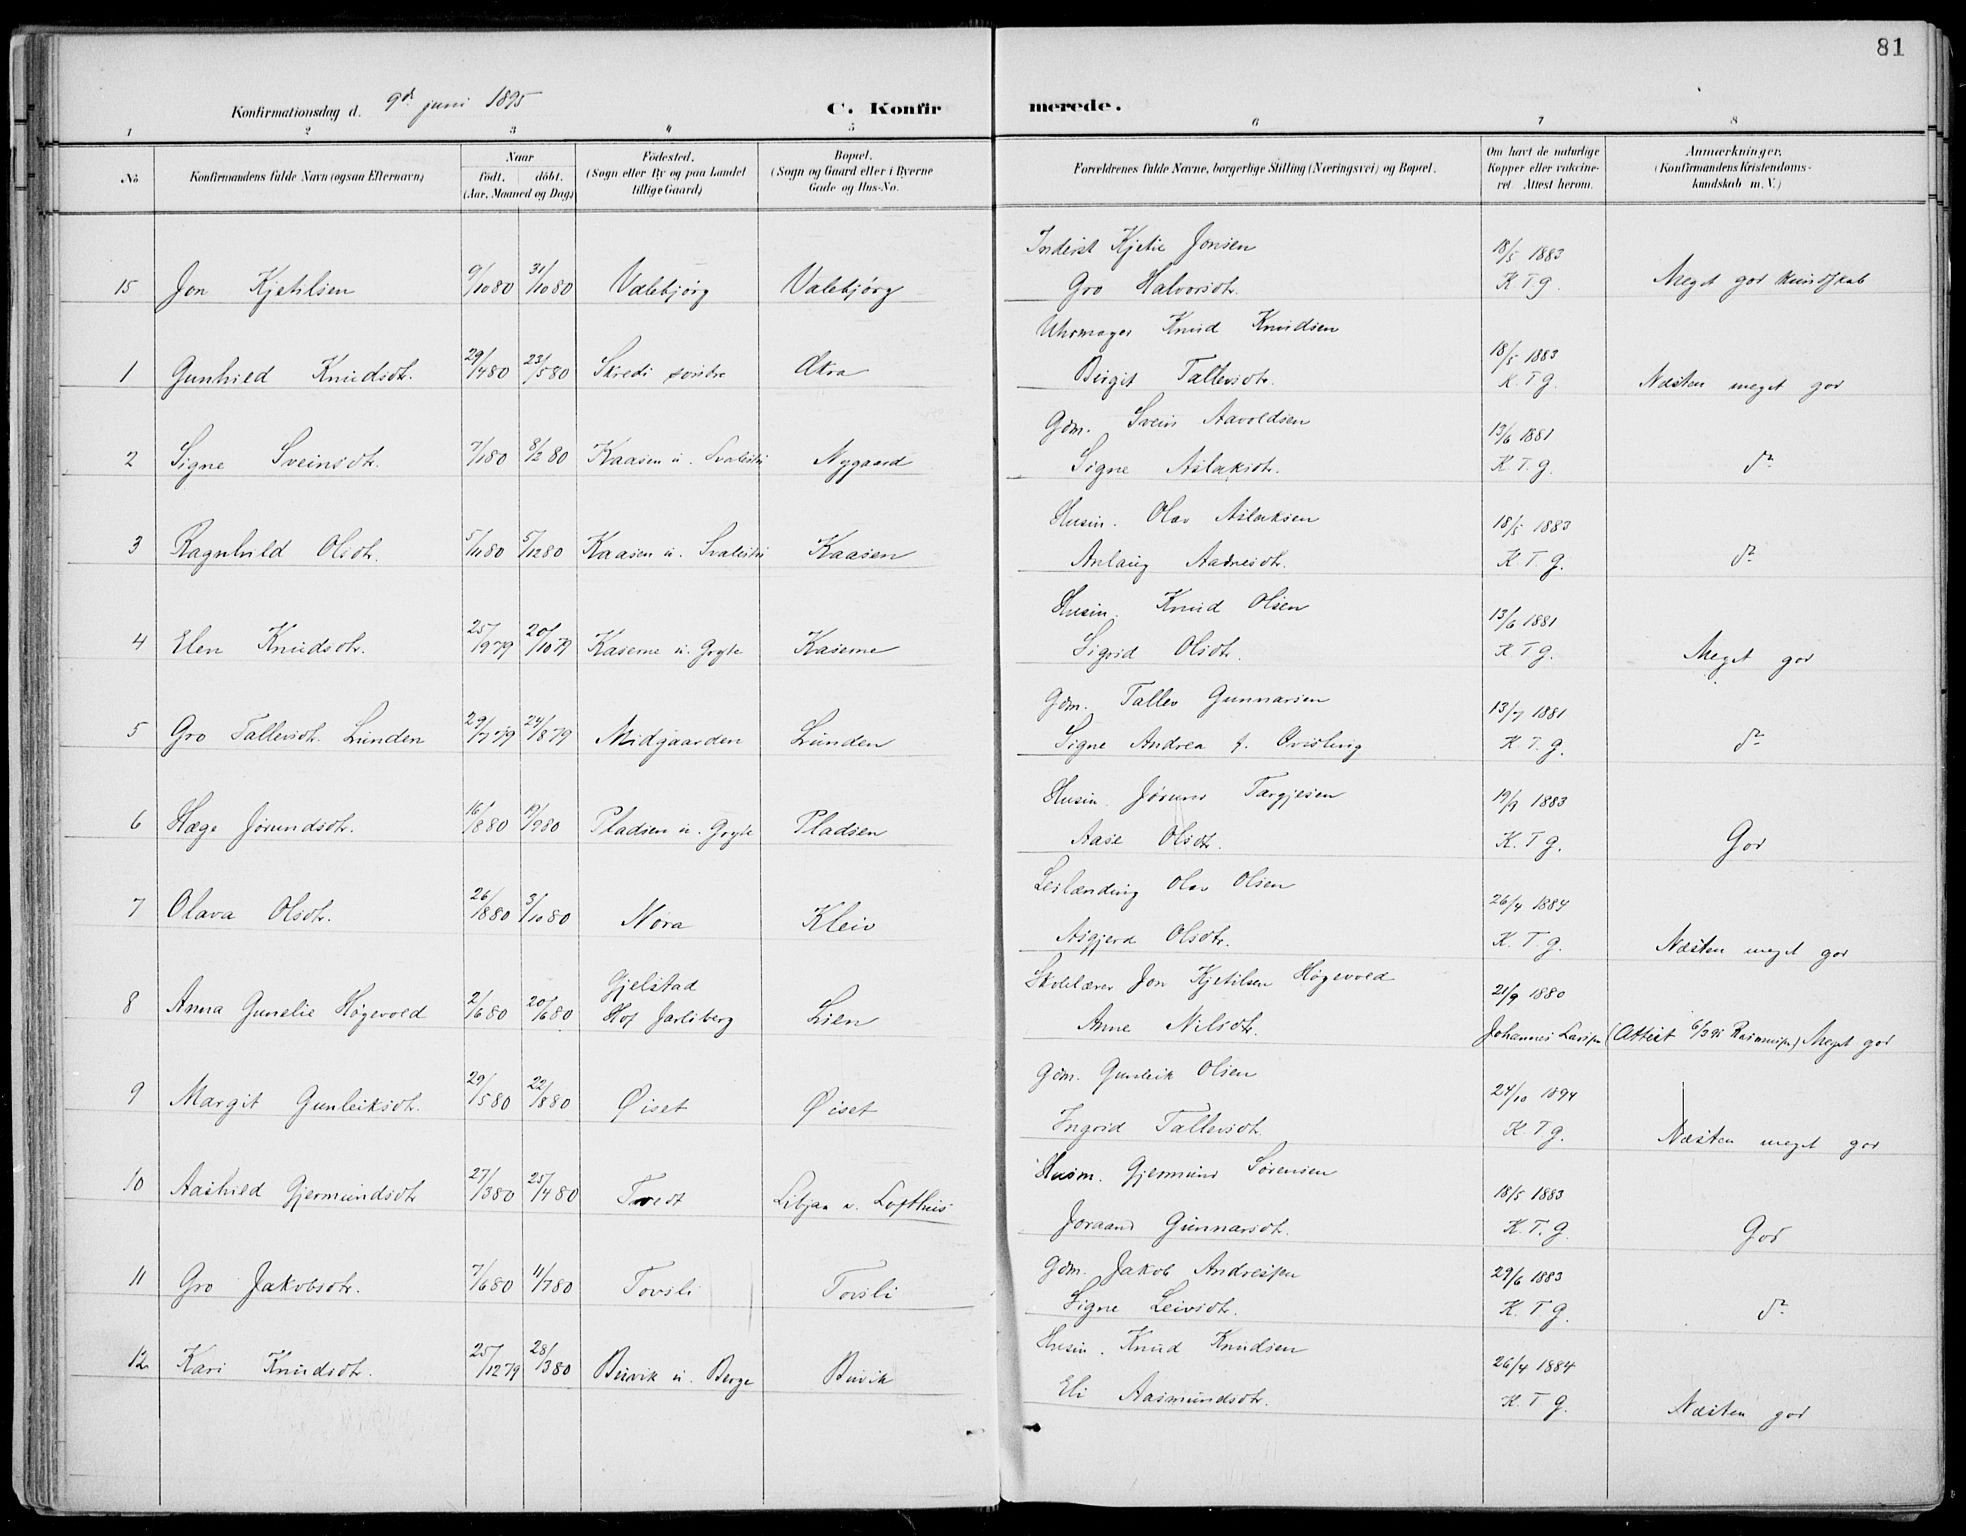 81
Konfirmationsdag d. 9de juni 1895
C. Konfir merede.
1 2 3 4 5 6 7 8
No
Konfirmandens fulde Navn (ogsaa Efternavn)
Naar
født. døbt.
(Aar, Maaned og Dag)
Fødested.
(Sogn eller By og paa Landet
tillige Gaard)
Bopæl.
(Sogn og Gaard eller i Byerne
Gade og Hus-No.
Forældrenes fulde Navne, borgerlige Stilling (Næringsvei) og Bopæl.
Om havt de naturlige
Kopper eller vakcine-
ret. Attest herom.
Anmærkninger.
(Konfirmandens Kristendoms-
kundskab m. V.)
Inderst Kjetil Jonsen 18/5 1883
15 Jon Kjetilsen 9/10 80 31/10 80 Valebjørg Valebjørg Gro Halvorsdtr. K T G. Meget god kundskab
Uhrmager Knud Knudsen 18/5 1883
1 Gunhild Knudsdtr. 29/4 80 23/5 80 Skredi søndre Atra Birgit Tallevsdtr. K. T G. Næsten meget god
Gdm. Svein Aavoldsen 13/6 1881
2 Signe Sveinsdtr. 7/1 80 8/2 80 Kaasen u. Svalestu Nygaard Signe Aslaksdtr. K. T. G. do
Husm. Olav Aslaksen 18/5 1883
3 Ragnhild Olsdtr. 5/11 80 5/12 80 Kaasen u. Svalestu Kaasen Anlaug Aadnesdtr. K. T. G. do
Husm. Knud Olsen 13/6 1881
4 Elen Knudsdtr. 25/9 79 20/10 79 Kaserne u. Gryte Kaserne Sigrid Olsdtr. K T G. Meget god
Gdm. Tallev Gunnarsen 13/7 1881
5 Gro Tallevsdtr. Lunden 29/7 79 24/8 79 Midgaarden Lunden Signe Andrea f. Qvisling K. T. G. do
Husm. Jørund Targjesen 19/9 1883
6 Hæge Jørundsdtr. 16/8 80 19/9 80 Pladsen u. Gryte Pladsen Aase Olsdtr. K. T G. God
Leilænding Olav Olsen 26/4 1884
7 Olava Olsdtr. 26/8 80 3/10 80 Nora Kleiv Asgjerd Olsdtr. K. T G. Næsten meget god
Gjelstad Skolelærer Jon Kjetilsen Høgevold 21/9 1880
8 Anna Gunelie Høgevold 2/6 80 20/6 80 Hof Jarlsberg Lien Anne Nilsdtr. Johannes Larsen (Attest 6/3 91 Rasmussen) Meget god
Gdm. Gunleik Olsen 24/10 1894
9 Margit Gunleiksdtr. 29/5 80 22/8 80 Øiset Øiset Ingrid Tallevsdtr. K. T G. Næsten meget god
Husm. Gjermund Sørensen 18/5 1883
10 Aashild Gjermundsdtr 27/3 80 25/4 80 Tvedt Libjaa u. Lofthus Joraand Gunnarsdtr. K. T. G. God
Gdm. Jakob Andressen 29/6 1883
11 Gro Jakobsdtr. 7/6 80 11/7 80 Tovsli Tovsli Signe Leivsdtr. K. T G. do
Husm. Knud Knudsen 26/4 1884
12 Kari Knudsdtr. 25/12 79 28/3 80 Buvik u. Berge Buvik Eli Aasmundsdtr. K. T G. Næsten god